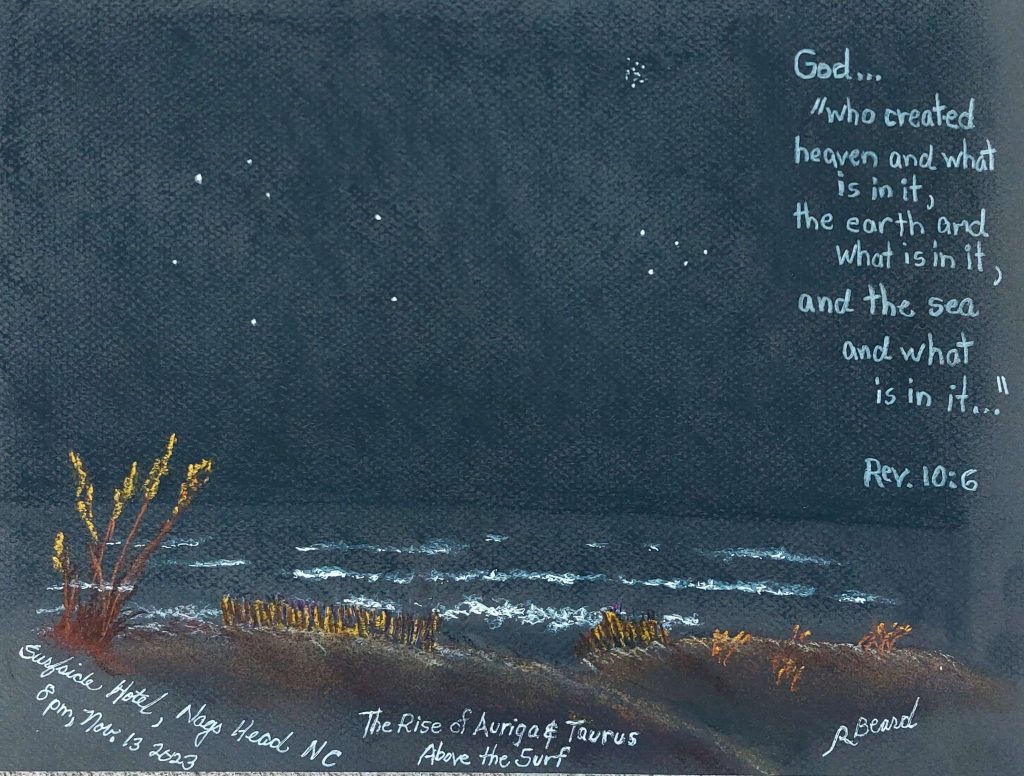 God...
"who created
heaven and what
is in it,
the earth and
what is in it,
and the sea
and what
is in it..."
Rev. 10:6
Surfside Hotel, Nags Head NC
8pm, Nov. 13 2023
The Rise of Auriga & Taurus
Above the Surf
R Beard